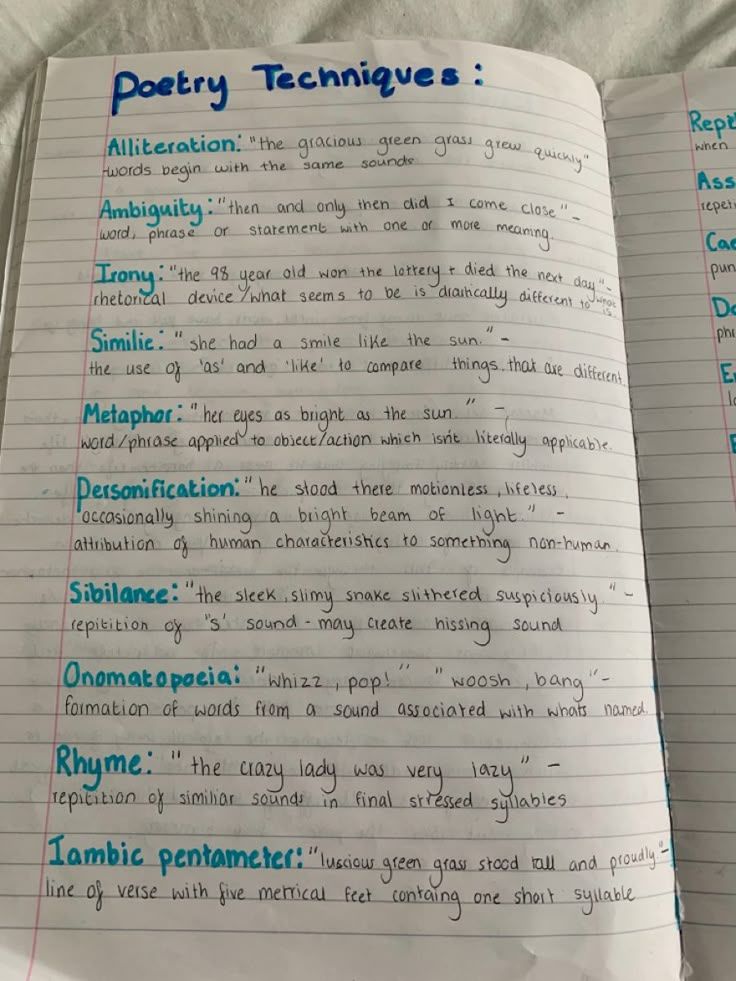 Poetry Techniques:
Alliteration: "the gracious green grass grew quickly"
-words begin with the same sounds
Ambiguity: "then and only then did I come close" -
word, phrase or statement with one or more meaning.
Irony: "the 98 year old won the lottery + died the next day" -
rhetorical device/what seems to be is drastically different to what is.
Similie: "she had a smile like the sun." -
the use of 'as' and 'like' to compare things, that are different.
Metaphor: "her eyes as bright as the sun." -
word/phrase applied to object/action which isn't literally applicable.
Personification: "he stood there motionless, lifeless,
occasionally shining a bright beam of light." -
attribution of human characteristics to something non-human.
Sibilance: "the sleek, slimy snake slithered suspiciously." -
repitition of 's' sound - may create hissing sound
Onomatopoeia: "whizz, pop!" "woosh, bang" -
formation of words from a sound associated with whats named.
Rhyme: "the crazy lady was very lazy" -
repitition of similiar sounds in final stressed syllables
Iambic pentameter: "luscious green grass stood tall and proudly" -
line of verse with five metrical feet containg one short syllable
Repit
when
Ass
repeti
Cae
pun
Do
phr